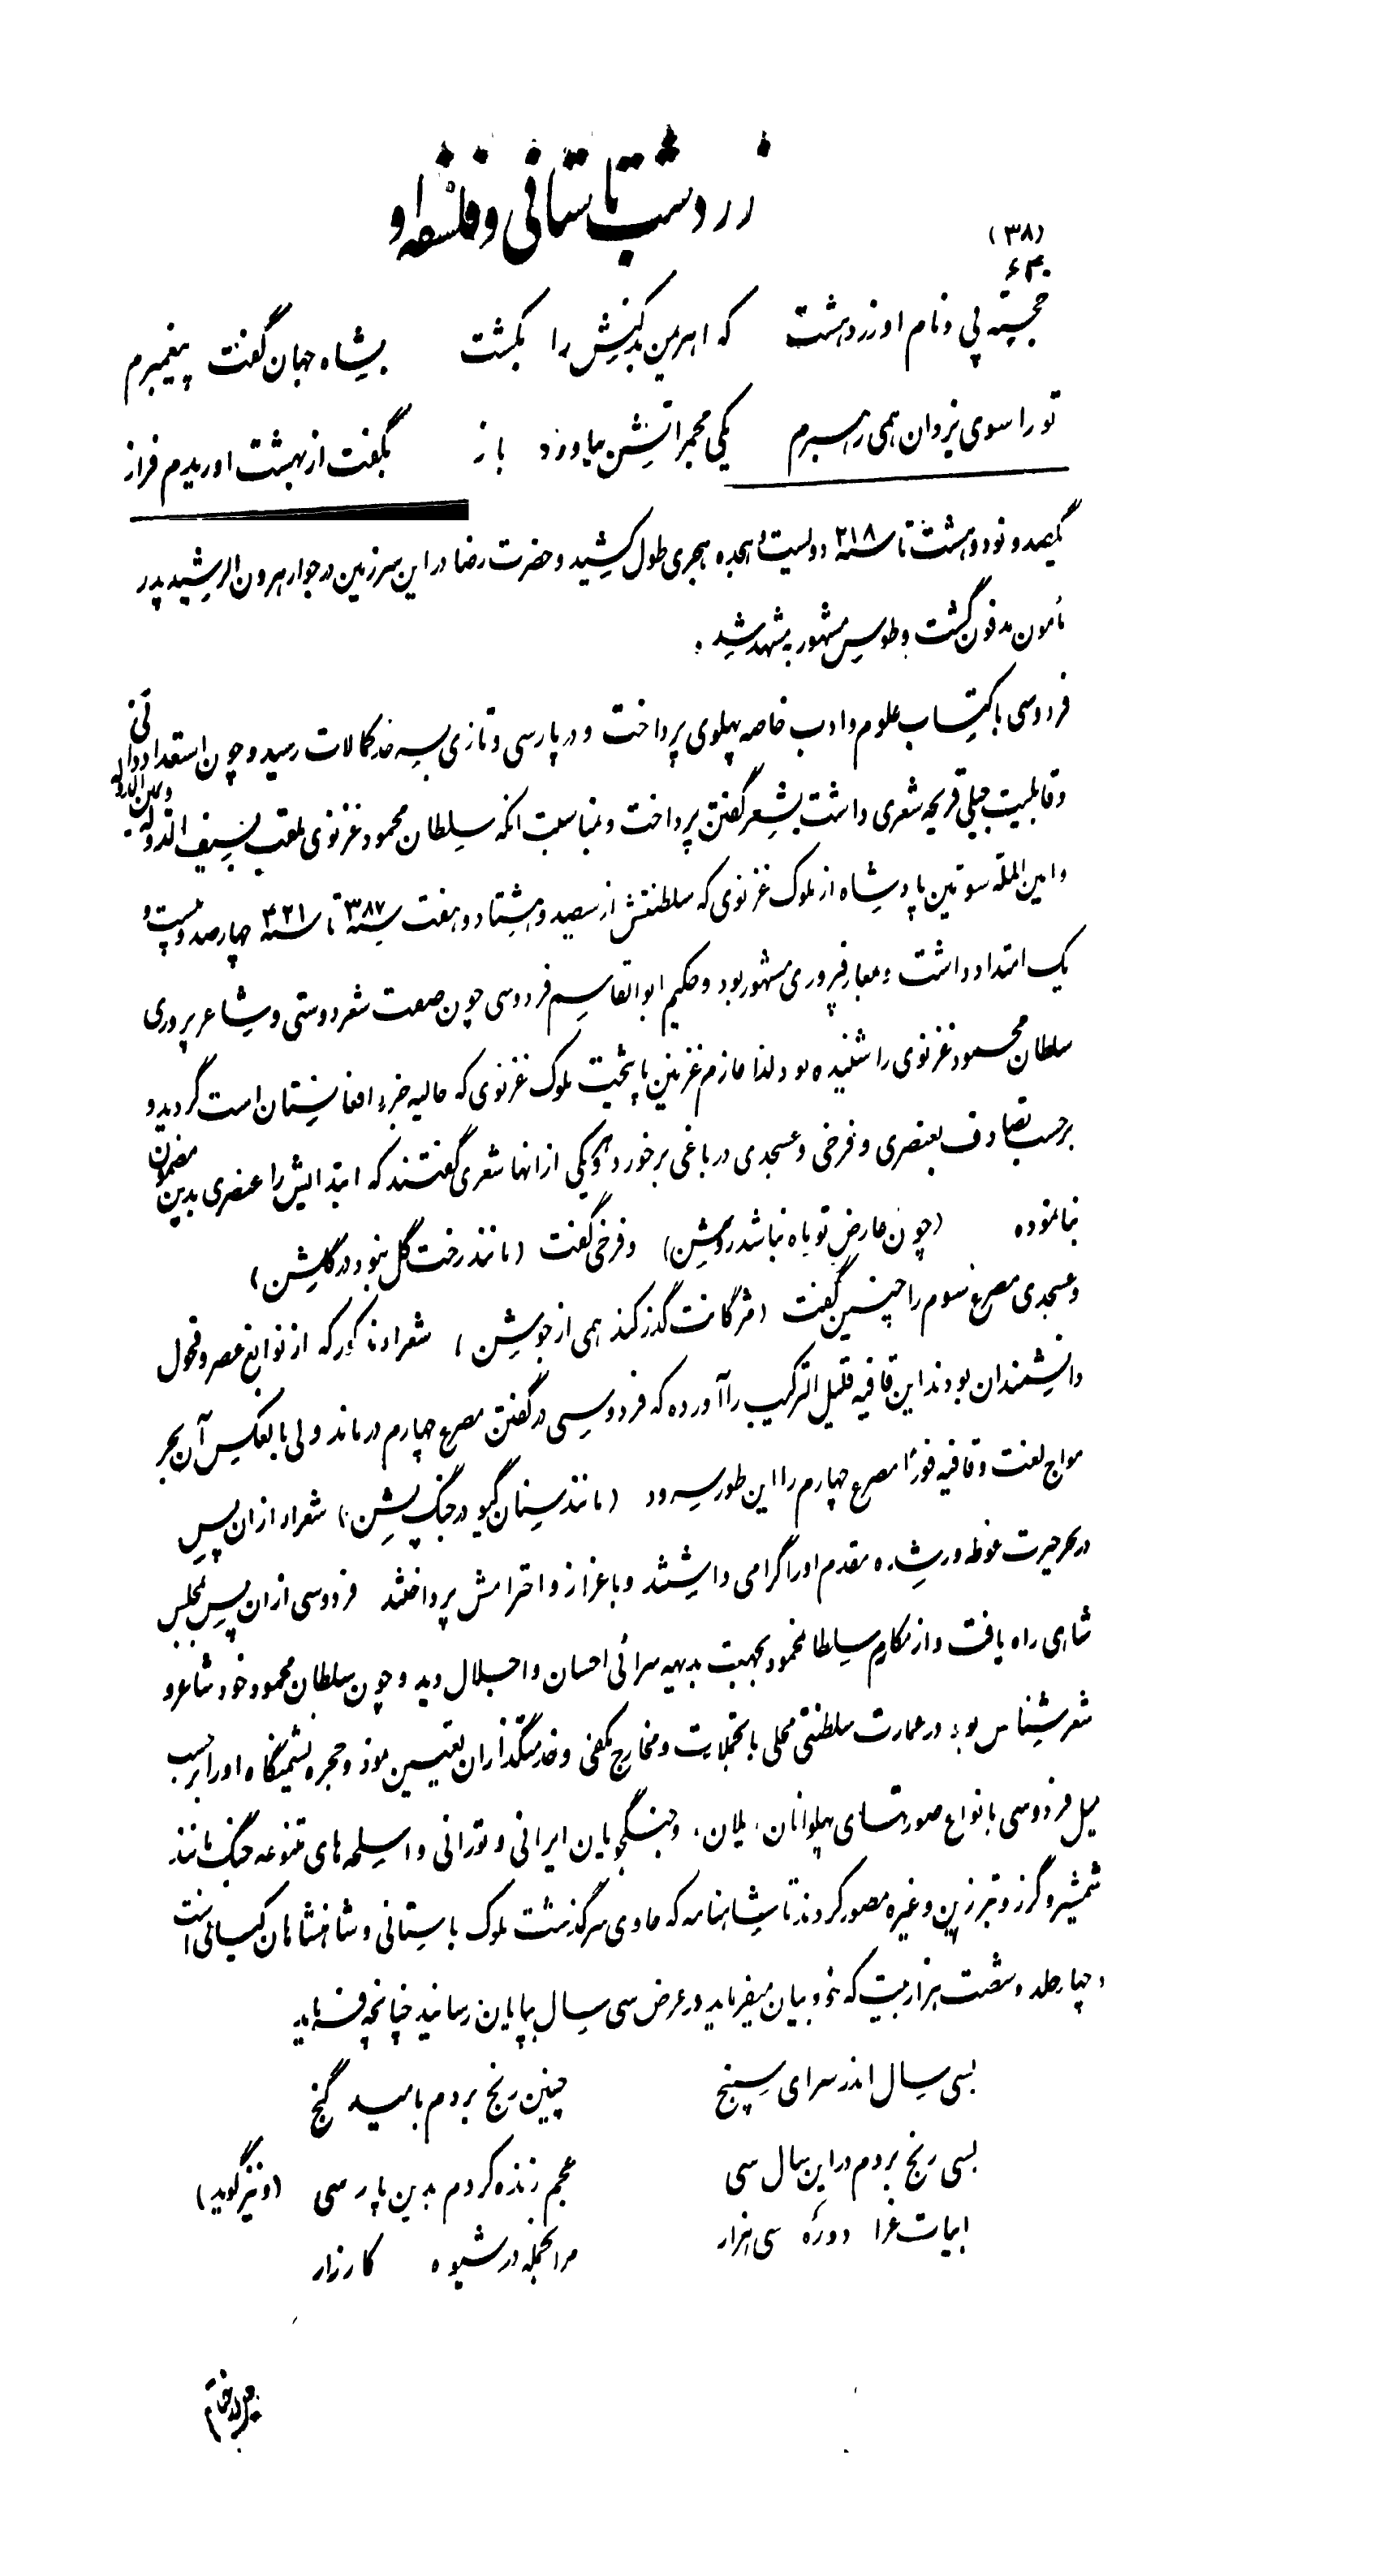 زردشت باستانی و فلسفه او
(۳۸)
۶۳۰
خجسته پی و نام او زردهشت که اهریمن بدکنش را بکشت بشاه جهان گفت پیغمبرم
تو را سوی یزدان همی رهبرم یکی مجمر آتش بیاورد باز بگفت از بهشت اوریدم فراز
یکصد و نود و هشت تا سنه ۲۱۸ دویست و هجده هجری طول کشید و حضرت رضا در این سرزمین در جوار هرون الرشید پدر
مأمون مدفون گشت و طوس مشهور به مشهد شد .
فردوسی باکتساب علوم و ادب خاصه پهلوی پرداخت و در پارسی و تازی بسر حد کمالات رسید و چون استعداد ذاتی
و قابلیت جبلی قریحه شعری داشت بشعر گفتن پرداخت و بمناسبت انکه سلطان محمود غزنوی ملقب بسیف الدوله و یمین الدوله
و امین المله سومین پادشاه از ملوک غزنوی که سلطنتش از سیصد و هشتاد و هفت سنه ۳۸۷ تا سنه ۴۲۱ چهارصد و بیست و
یک امتداد داشت و معارف پروری مشهور بود و حکیم ابوالقاسم فردوسی چون صعت شعر دوستی و شاعر پروری
سلطان محمود غزنوی را شنیده بود لذا عازم غزنین پاتخت ملوک غزنوی که حالیه جزء افغانستان است گردید و
برحسب تصادف بعنصری و فرخی و عسجدی در باغی برخورد و هر یکی از انها شعری گفتند که ابتدایش را عنصری بدین مضمون
بنا نموده (چون عارض تو ماه نباشد روشن) و فرخی گفت (مانند رخت گل نبود در گلشن)
و عسجدی مصرع سوم را چنین گفت (مژگانت گذر کند همی از جوشن) شعراء مذکور که از نوابغ عصر و فحول
دانشمندان بودند این قافیه قلیل الترکیب را آورده که فردوسی در گفتن مصرع چهارم درماند ولی بالعکس آن بحر
مواج لغت و قافیه فورًا مصرع چهارم را این طور سرود (مانند سنان گیو در جنگ پشن) شعراء از ان پس
در بحر حیرت غوطه ور شده مقدم او را گرامی داشتند و باعزاز و احترامش پرداختند فردوسی از ان پس بمجلس
شاهی راه یافت و از مکارم سلطان محمود بجهت بدیهه سرائی احسان و اجلال دید و چون سلطان محمود خود شاعر و
شعر شناس بود در عمارت سلطنتی محلی با تجملات و مخارج مکفی و خدمتگذاران تعیین نمود و حجره نشیمنگاه او را برحسب
میل فردوسی با نواع صورتهای پهلوانان ، یلان ، و جنگجویان ایرانی و تورانی و اسلحه های متنوعه جنگ مانند
شمشیر و گرز و تبرزین و غیره مصور کردند تا شاهنامه که حاوی سرگذشت ملوک باستانی و شاهنشاهان کیانی است
در چهار جلد و شصت هزار بیت که خود بیان میفرماید در عرض سی سال بپایان رسانید چنانچه فرماید
بسی سال اندر سرای سپنج چنین رنج بردم بامید گنج
بسی رنج بردم در این سال سی عجم زنده کردم بدین پارسی (و نیز گوید)
ابیات غرا دوره سی هزار مرانجمله در شیوه کارزار